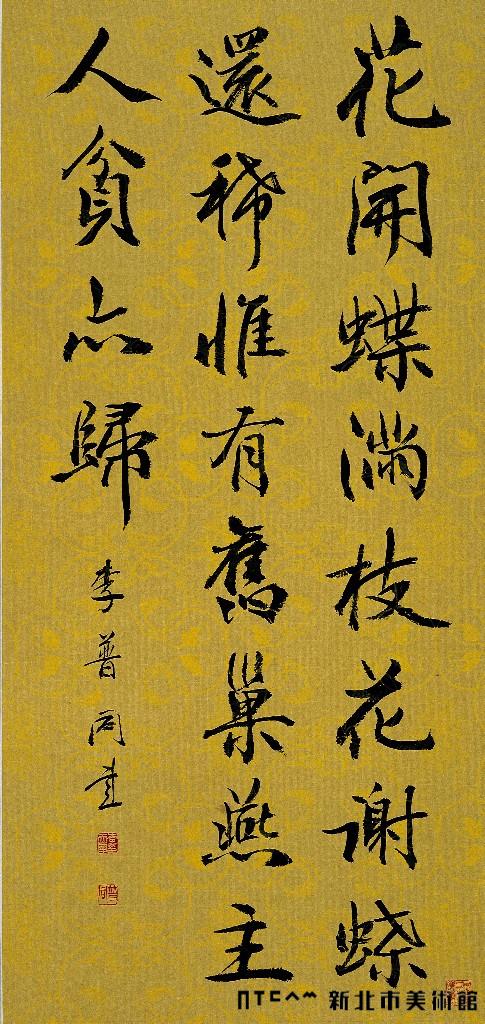 花開蝶滿枝花謝蝶
還稀惟有舊巢燕主
人貧亦歸
李普同書
NTCAM 新北市美術館